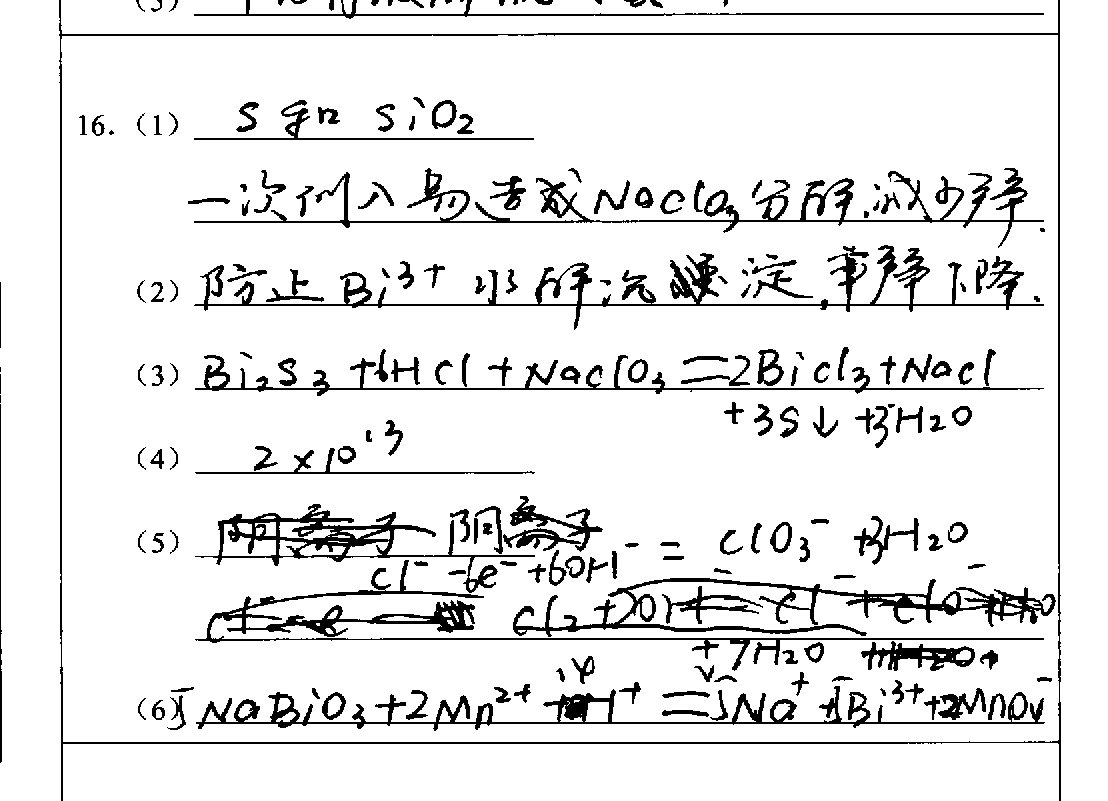 (5)
16. (1) S 和 SiO₂
一次倒入易造成NaClO₃分解,减少率.
(2) 防止Bi³⁺水解沉淀,率降下降.
(3) Bi₂S₃+6HCl+NaClO₃=2BiCl₃+NaCl
+3S↓+3H₂O
(4) 2×10¹³
(5) 阴离子 阴离子
Cl⁻-6e⁻+6OH⁻=ClO₃⁻+3H₂O
Cl₂+2OH⁻=Cl⁻+ClO⁻
+7H₂O
(6) 5NaBiO₃+2Mn²⁺+14H⁺=5Na⁺+5Bi³⁺+2MnO₄⁻